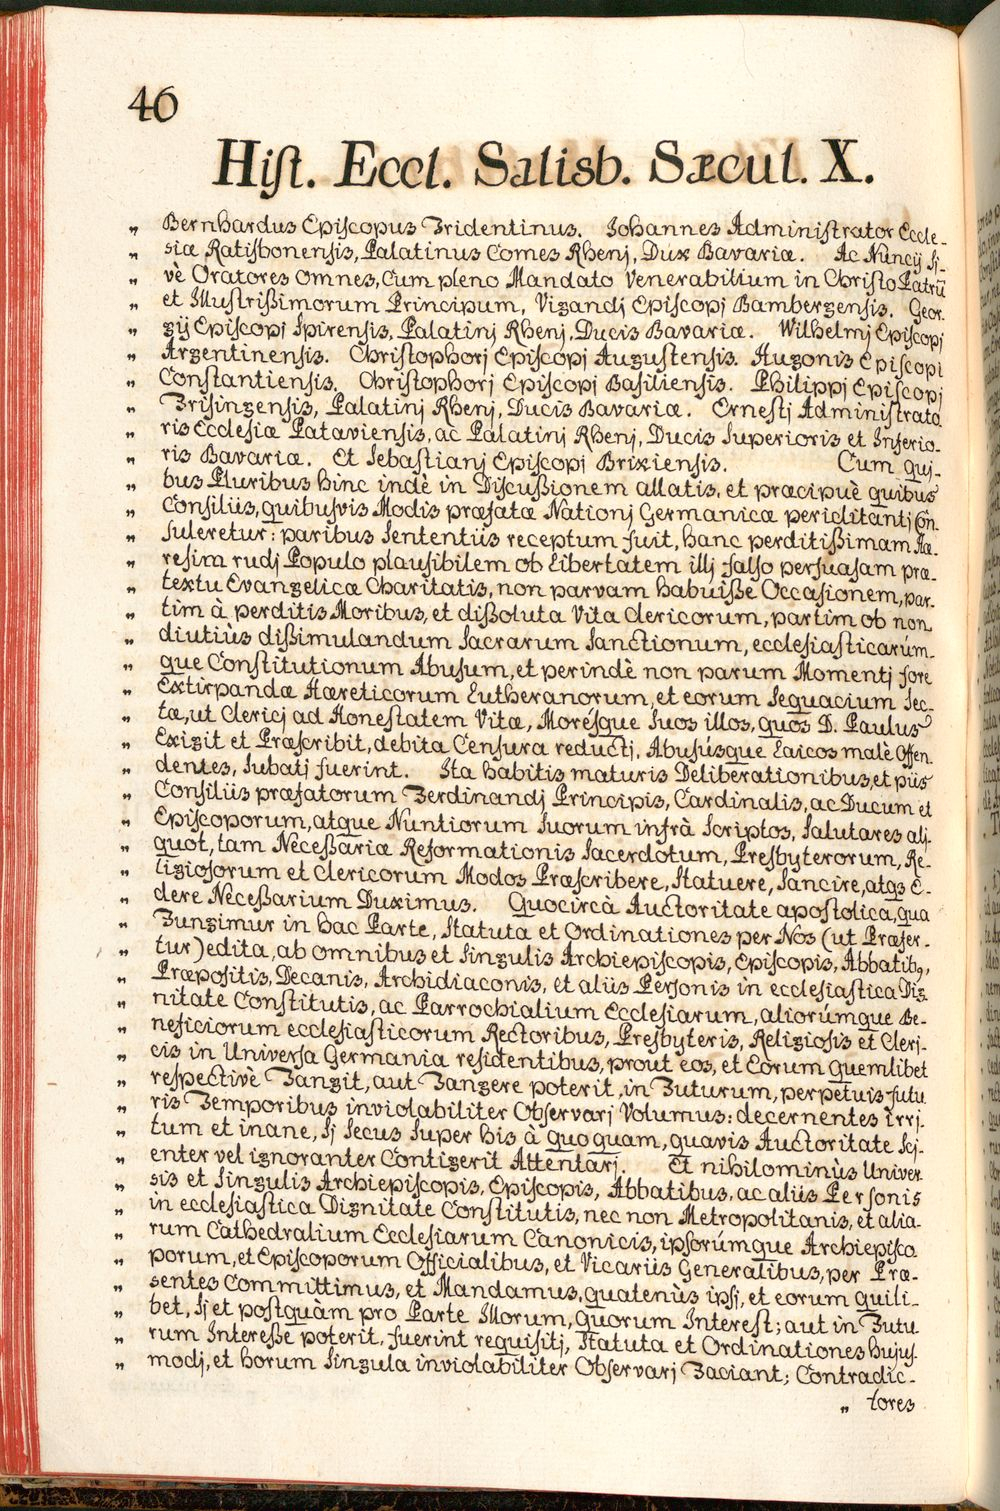 46
Hiſt. Eccl. Salisb. Sæcul. X.
„ Bernhardus Epiſcopus Tridentinus. Johannes Adminiſtrator Eccle-
„ siæ Ratisbonenſis, Palatinus Comes Rhenj, Dux Bavariæ. Ac Nuncij ſi-
„ vè Oratores omnes, Cum pleno Mandato Venerabilium in Chriſto Patrũ
„ et Illuſtrißimorum Principum, Vigandj Epiſcopj Bambergenſis. Geor-
„ gij Epiſcopj Spirenſis, Palatinj Rhenj, Ducis Bavariæ. Wilhelmj Epiſcopj
„ Argentinenſis. Chriſtophorj Epiſcopj Auguſtenſis. Hugonis Epiſcopi
„ Conſtantienſis. Chriſtophorj Epiſcopj Baſilienſis. Philippj Epiſcopj
„ Friſingenſis, Palatinj Rhenj, Ducis Bavariæ. Erneſtj Adminiſtrato
„ ris Ecclesiæ Patavienſis, ac Palatinj Rhenj, Ducis Superioris et Inferio-
„ ris Bavariæ. Et Sebaſtianj Epiſcopj Brixienſis. Cum qui-
„ bus Pluribus hinc indè in Diſcußionem allatis, et præcipuè quibus
„ Conſiliis, quibuſvis Modis præfatæ Nationj Germanicæ periclitantj Con-
„ ſuleretur: paribus Sententiis receptum fuit, hanc perditißimam Hæ-
„ resim rudj Populo plauſibilem ob Libertatem illj falſo perſuaſam præ-
„ textu Evangelicæ Charitatis, non parvam habuiße Occaſionem, par-
„ tim à perditis Moribus, et dißoluta Vita Clericorum, partim ob non
„ diutiùs dißimulandum Sacrarum Sanctionum, eccleſiaſticarúm-
„ que Conſtitutionum Abuſum, et perindè non parum Momentj fore
„ Extirpandæ Hæreticorum Lutheranorum, et eorum Sequacium Sec-
„ tæ, ut Clericj ad Honeſtatem Vitæ, Moréſque Suos illos, quos D. Paulus
„ Exigit et Præſcribit, debita Cenſura reductj, Abuſúsque Laicos malè Offen-
„ dentes, Subatj fuerint. Ita habitis maturis Deliberationibus, et piis
„ Conſiliis præfatorum Ferdinandj Principis, Cardinalis, ac Ducum et
„ Epiſcoporum, atque Nuntiorum Suorum infrà Scriptos, Salutares ali-
„ quot, tam Neceßariæ Reformationis Sacerdotum, Presbyterorum, Re-
„ ligioſorum et Clericorum Modos Præſcribere, Statuere, Sancire, atqȝ E-
„ dere Neceßarium Duximus. Quocircà Auctoritate apoſtolica, qua
„ Fungimur in hac Parte, Statuta et Ordinationes per Nos (ut Præfer-
„ tur) edita, ab omnibus et Singulis Archiepiſcopis, Epiſcopis, Abbatibȝ,
„ Præpoſitis, Decanis, Archidiaconis, et aliis Perſonis in eccleſiaſtica Dig-
„ nitate Conſtitutis, ac Parrochialium Eccleſiarum, aliorúmque Be-
„ neficiorum eccleſiaſticorum Rectoribus, Presbyteris, Religioſis et Cleri-
„ cis in Univerſa Germania reſidentibus, prout eos, et Eorum quemlibet
„ reſpectivè Tangit, aut Tangere poterit, in Futurum, perpetuis futu
„ ris Temporibus inviolabiliter Obſervarj Volumus: decernentes irri-
„ tum et inane, Si Secus Super his à quoquam, quavis Auctoritate Sci-
„ enter vel ignoranter Contigerit Attentarj. Et nihilominùs Univer
„ sis et Singulis Archiepiſcopis, Epiſcopis, Abbatibus, ac aliis Perſonis
„ in eccleſiaſtica Dignitate Conſtitutis, nec non Metropolitanis, et alia-
„ rum Cathedralium Eccleſiarum Canonicis, ipſorúmque Archiepiſco
„ porum, et Epiſcoporum Officialibus, et Vicariis Generalibus, per Præ-
„ sentes Committimus, et Mandamus, quatenùs ipſj, et eorum quili-
„ bet, ſi et poſtquàm pro Parte Illorum, Quorum Intereſt; aut in Futu
„ rum Intereße poterit, fuerint requiſitj, Statuta et Ordinationes hujuſ-
„ modj, et horum Singula inviolabiliter Obſervarj Faciant; Contradic-
„ tores